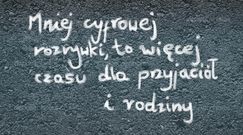 Mniej cyfrowej
rozrywki, to więcej
czasu dla przyjaciół
i rodziny